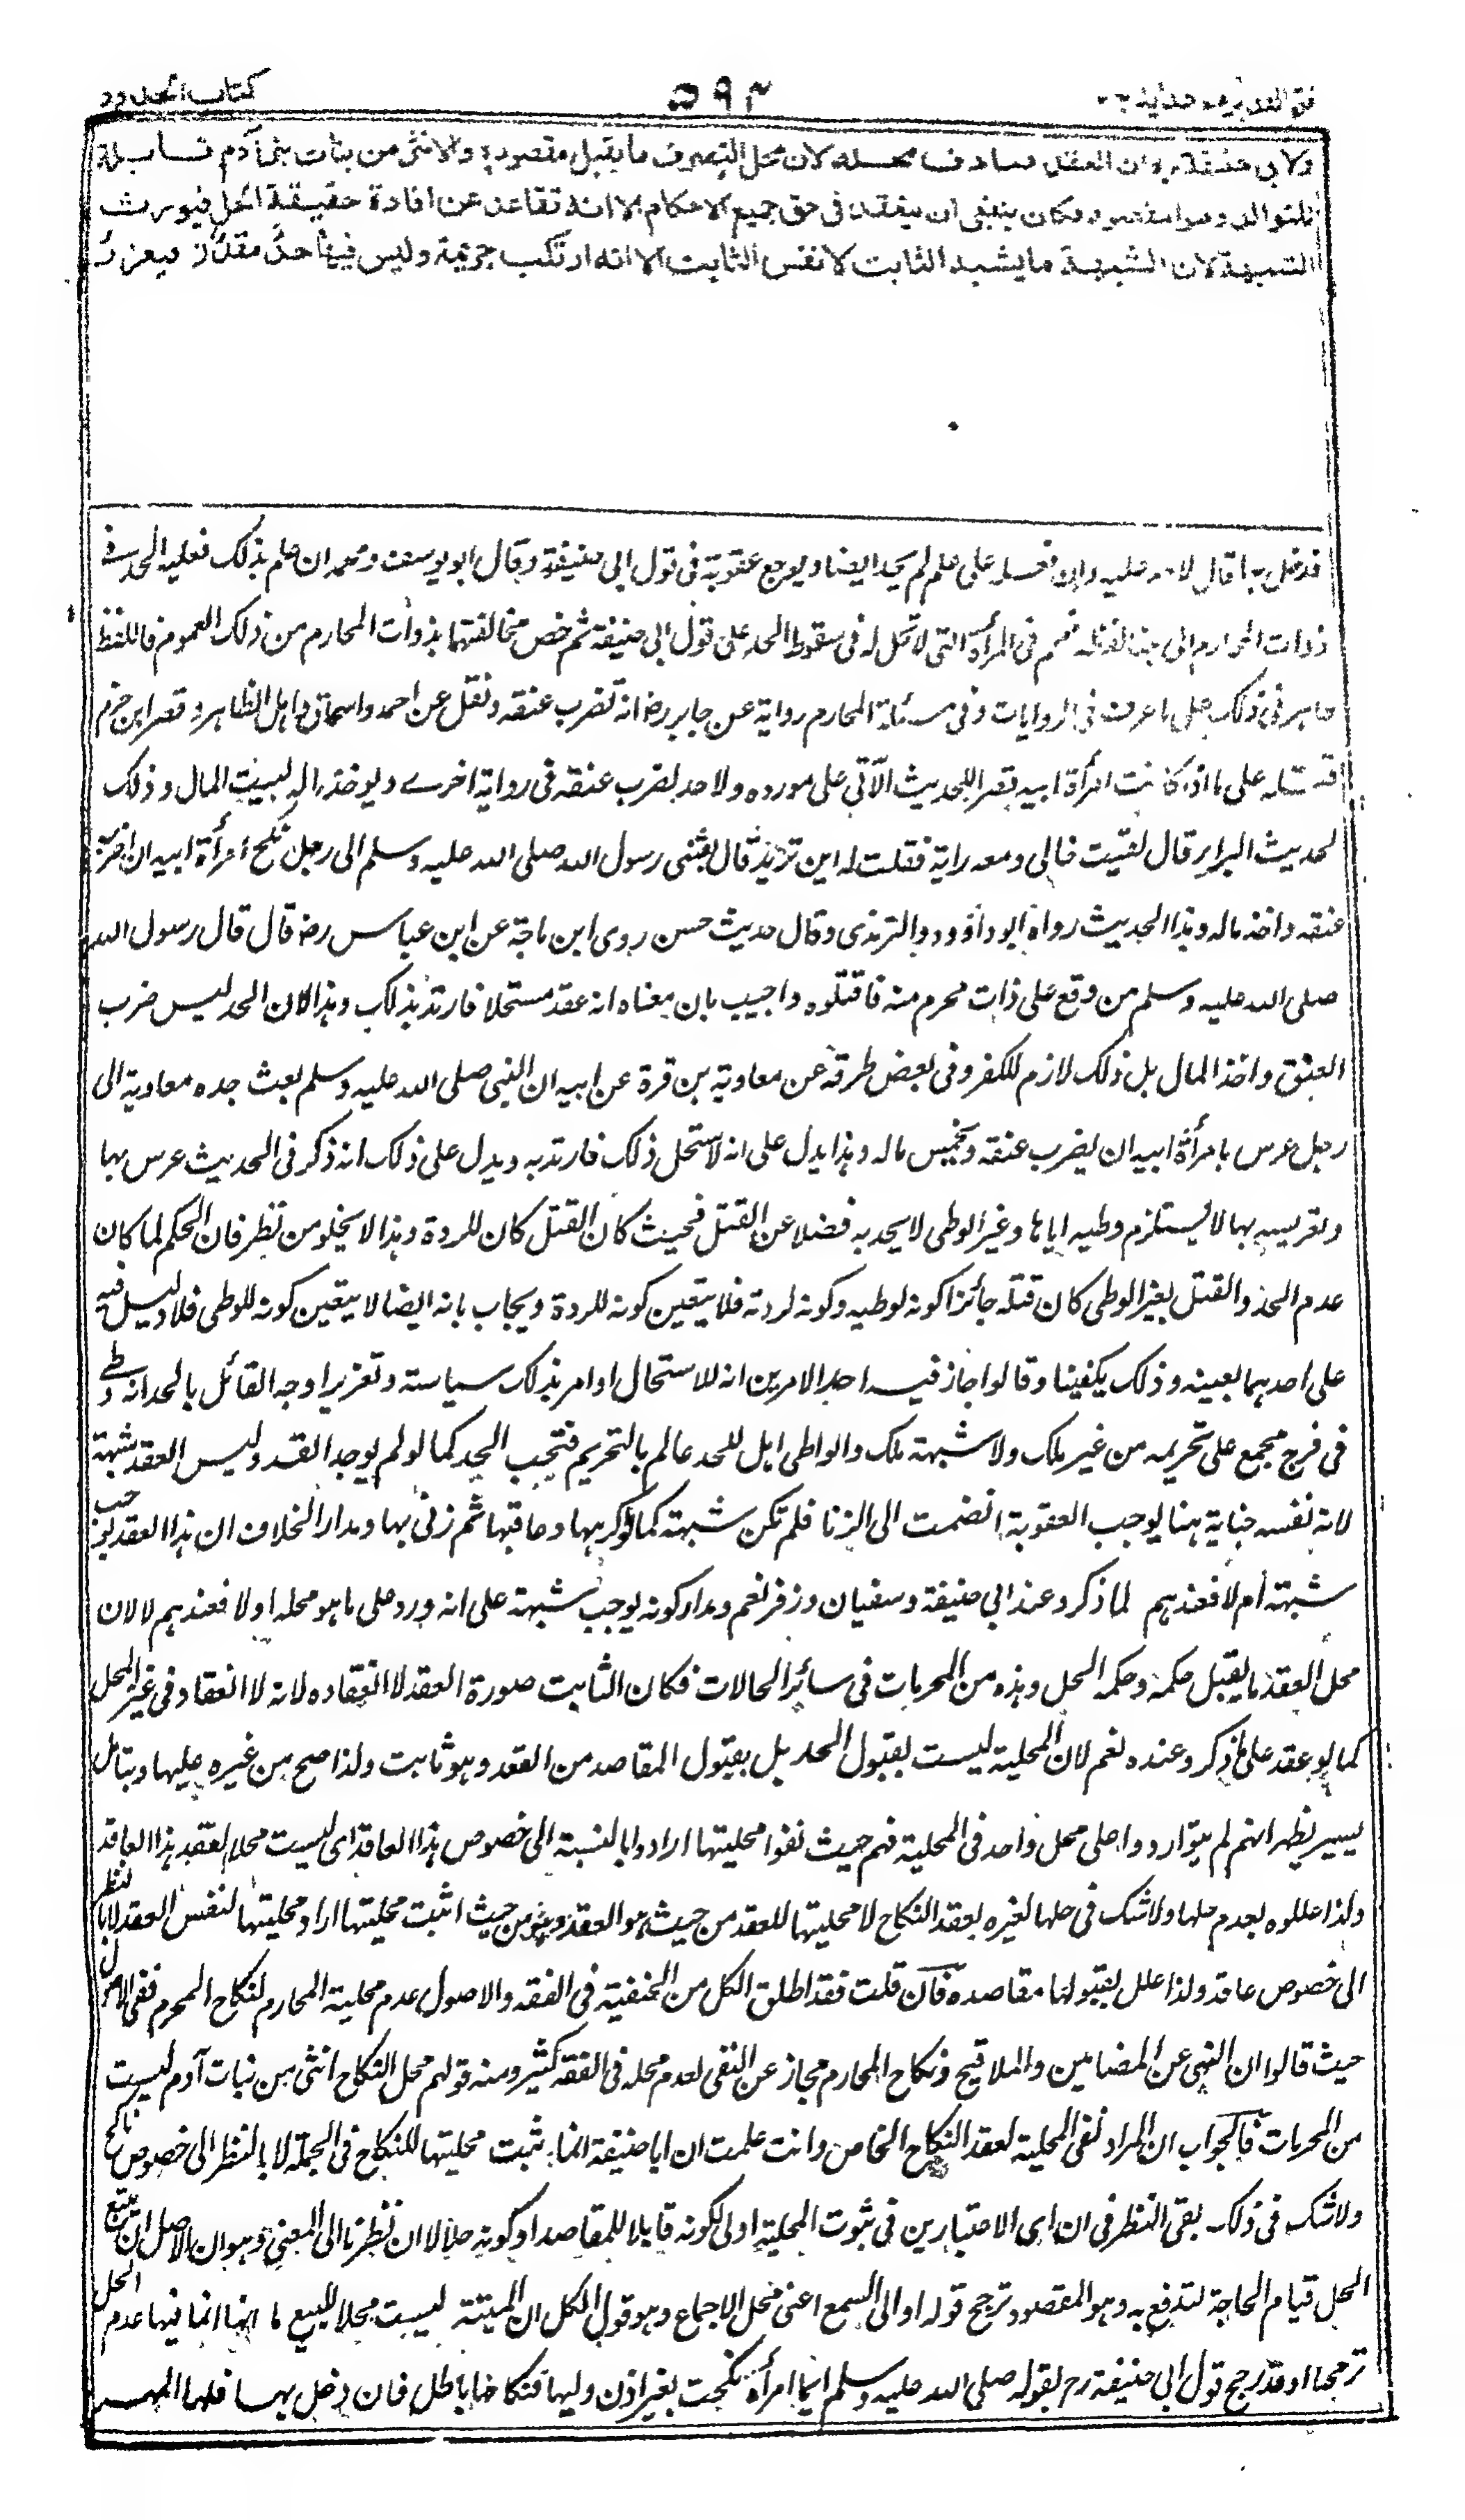 فتح القدير مع هداية ج٢ ٥٩٣ كتاب الحدود
ولابي حنيفة ان العقد صادف محله لان محل التصرف ما يقبل مقصوده والانثى من بنات بني آدم قابلة
للتوالد وهو المقصود فكان ينبغي ان ينعقد في حق جميع الاحكام الا انه تقاعد عن افادة حقيقة الحل فيورث
الشبهة لان الشبهة ما يشبه الثابت لا نفس الثابت الا انه ارتكب جريمة وليس فيها حد مقدر فيعزر
قال لا حد عليه وان فعله على علم لم يحد ايضا ويوجع عقوبة في قول ابي حنيفة وقال ابو يوسف ومحمد ان علم بذلك فعليه الحد في
ذوات المحارم الى هنا لفظه فعمم في المرأة التي لا تحل له في سقوط الحد على قول ابي حنيفة ثم خص مخالفتهما بذوات المحارم من ذلك العموم فاللفظ
ظاهر في ذلك على ما عرف في الروايات وفي مسئلة المحارم رواية عن جابر رض انه تضرب عنقه ونقل عن احمد واسحاق واهل الظاهر وقصر ابن حزم
قتله على ما اذا كانت امرأة ابيه قصر اللحديث الآتي على مورده ولاحمد يضرب عنقه في رواية اخرى ويؤخذ ماله لبيت المال وذلك
لحديث البراء قال لقيت خالي ومعه راية فقلت له اين تريد قال بعثني رسول الله صلى الله عليه وسلم الى رجل نكح امرأة ابيه ان اضرب
عنقه واخذ ماله وهذا الحديث رواه ابو داؤود والترمذي وقال حديث حسن روى ابن ماجة عن ابن عباس رض قال قال رسول الله
صلى الله عليه وسلم من وقع على ذات محرم منه فاقتلوه واجيب بان معناه انه عقد مستحلا فارتد بذلك وهذا لان الحد ليس ضرب
العنق واخذ المال بل ذلك لازم للكفر وفي بعض طرقه عن معاوية بن قرة عن ابيه ان النبي صلى الله عليه وسلم بعث جده معاوية الى
رجل عرس بامرأة ابيه ان يضرب عنقه ويخمس ماله وهذا يدل على انه استحل ذلك فارتد به ويدل على ذلك انه ذكر في الحديث عرس بها
وتعريسه بها لا يستلزم وطيه اياها وغير الوطي لا يحد به فضلا عن القتل فحيث كان القتل كان للردة وهذا لا يخلو من نظر فان الحكم لما كان
عدم الحد والقتل بغير الوطي كان قتله جائزا كونه لوطيه وكونه لردته فلا يتعين كونه للردة ويجاب بانه ايضا لا يتعين كونه للوطي فلا دليل فيه
على احدهما بعينه وذلك يكفينا وقالوا جاز فيه احد الامرين انه للاستحلال او امر بذلك سياسة وتعزيرا وجه القائل بالحد انه وطي
في فرج مجمع على تحريمه من غير ملك ولا شبهة ملك والواطي اهل للحد عالم بالتحريم فتجب الحد كما لو لم يوجد العقد وليس العقد شبهة
لانه نفسه جناية هنا يوجب العقوبة انضمت الى الزنا فلم تكن شبهة كما لو اكرهها وعاقبها ثم زنى بها ومدار الخلاف ان هذا العقد يوجب
شبهة ام لا فعندهم لا لما ذكر وعند ابي حنيفة وسفيان وزفر نعم ومدار كونه يوجب شبهة على انه ورد على ما هو محله اولا فعندهم لا لان
محل العقد ما يقبل حكمه وحكمه الحل وهذه من المحرمات في سائر الحالات فكان الثابت صورة العقد لا انعقاده لانه لا انعقاد في غير المحل
كما لو عقد على ذكر وعنده نعم لان المحلية ليست بقبول الحل بل بقبول المقاصد من العقد وهو ثابت ولذا صح من غيره عليها وبتامل
يسير يظهر انهم لم يتواردوا على محل واحد في المحلية فهم حيث نفوا محليتها ارادوا بالنسبة الى خصوص هذا العاقد اي ليست محلا لعقد هذا العاقد
ولذا عللوه بعدم حلها ولا شك في حلها لغيره بعقد النكاح لا محليتها للعقد من حيث هو العقد وهو من حيث اثبت محليتها اراد محليتها لنفس العقد لا بالنظر
الى خصوص عاقد ولذا علل بقبولها مقاصده فان قلت فقد اطلق الكل من الحنفية في الفقه والاصول عدم محلية المحارم لنكاح المحرم ففي الاصول
حيث قالوا ان النهي عن المضامين والملاقيح ونكاح المحارم مجاز عن النفي لعدم محله في الفقه كثير ومنه قولهم محل النكاح انثى من بنات آدم ليست
من المحرمات فالجواب ان المراد نفي المحلية لعقد النكاح الخاص وانت علمت ان ابا حنيفة انما يثبت محليتها للنكاح في الجملة لا بالنظر الى خصوص ناكح
ولا شك في ذلك بقي النظر في ان اي الاعتبارين في ثبوت المحلية اولى لكونه قابلا للمقاصد او كونه حلالا ان نظرنا الى المعنى وهو ان الاصل ان يتبع
الحل قيام الحاجة لتدفع به وهو المقصود ترجح قوله او الى السمع اعني محل الاجماع وهو قول الكل ان الميتة ليست محلا للبيع مع انها انما فيها عدم الحل
ترجحا وقد رجح قول ابي حنيفة رح بقوله صلى الله عليه وسلم ايما امرأة نكحت بغير اذن وليها فنكاحها باطل فان دخل بها فلها المهر